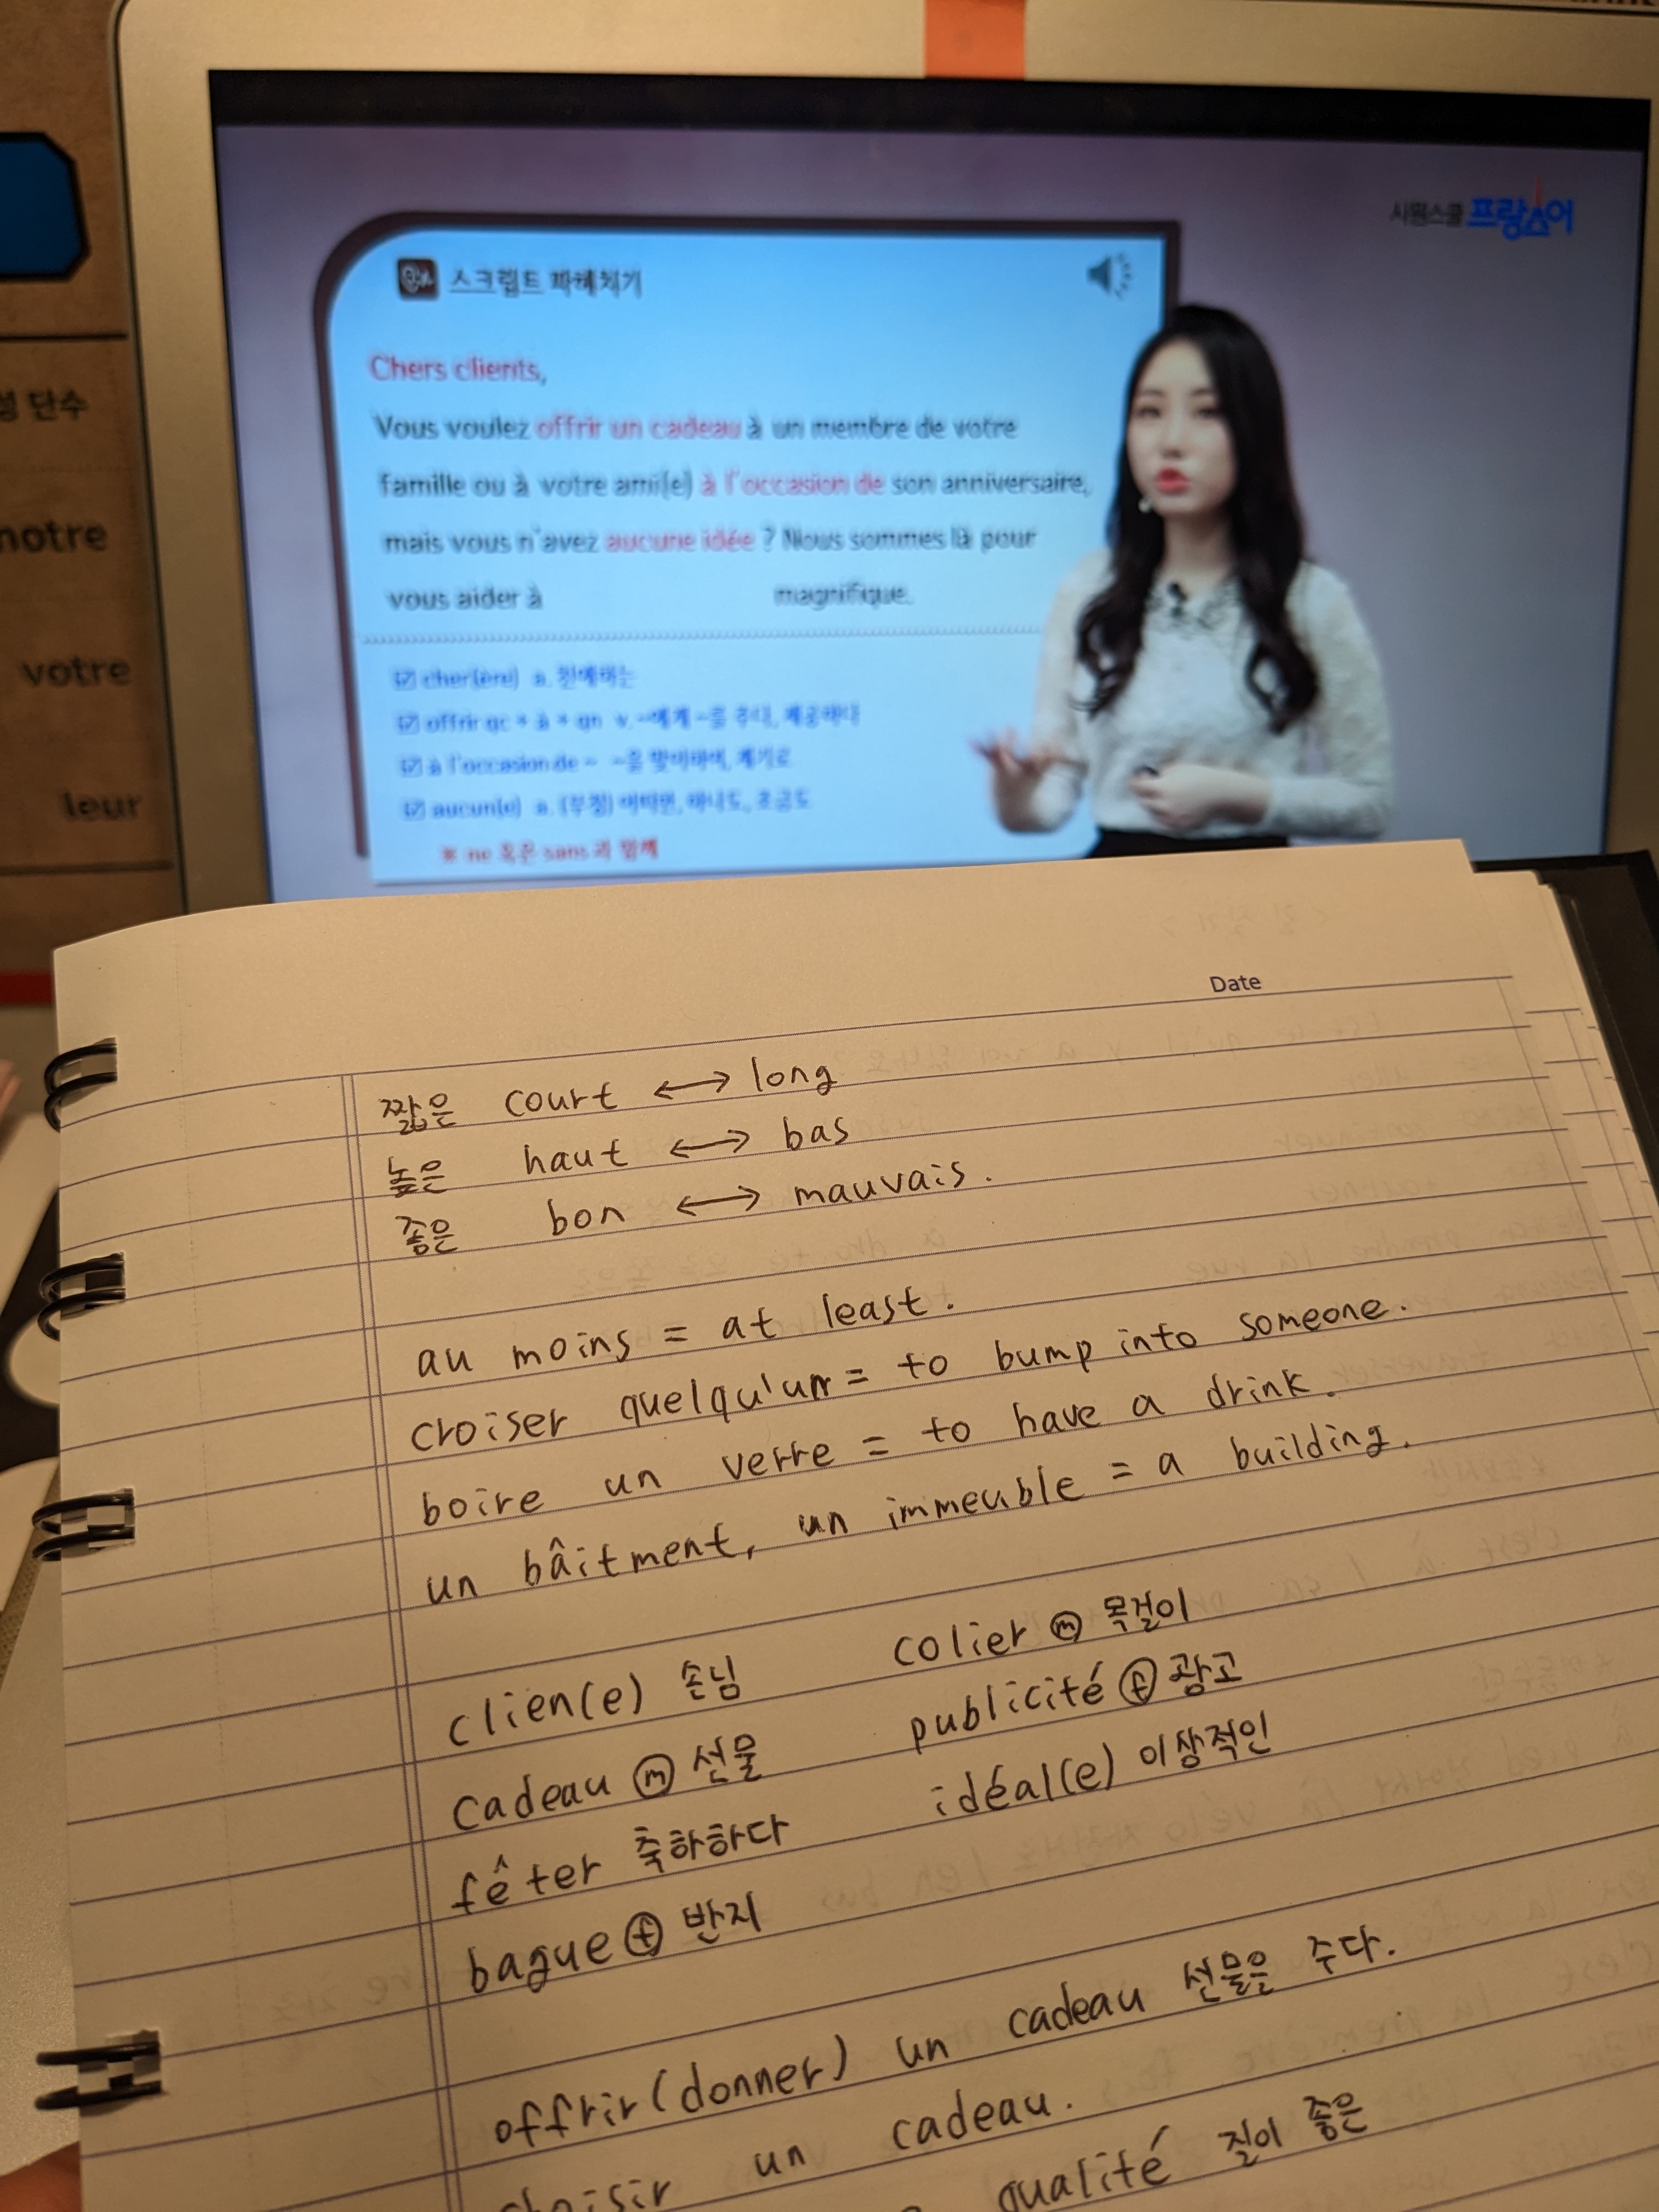 시원스쿨 프랑스어
스크립트 파헤치기
Chers clients,
Vous voulez offrir un cadeau à un membre de votre
famille ou à votre ami(e) à l'occasion de son anniversaire,
mais vous n'avez aucune idée ? Nous sommes là pour
vous aider à magnifique.
cher(ère) a. 친애하는
offrir qc + à + qn v. ~에게 ~을 주다, 제공하다
à l'occasion de ~ ~을 맞이하여, 계기로
aucun(e) a. (부정) 어떠한, 하나도, 조금도
※ ne 혹은 sans과 함께
성 단수
notre
votre
leur
Date
짧은 court ↔ long
높은 haut ↔ bas
좋은 bon ↔ mauvais.
au moins = at least.
croiser quelqu'un = to bump into someone.
boire un verre = to have a drink.
un bâitment, un immeuble = a building.
clien(e) 손님 colier ⓜ 목걸이
cadeau ⓜ 선물 publicité ⓕ 광고
fêter 축하하다 idéal(e) 이상적인
bague ⓕ 반지
offrir (donner) un cadeau 선물을 주다.
choisir un cadeau.
qualité 질이 좋은